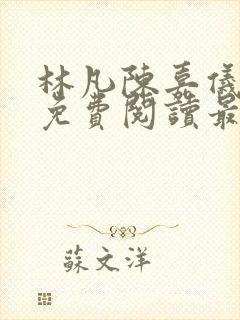 林凡陳嘉儀
免費閱讀最
蘇文洋